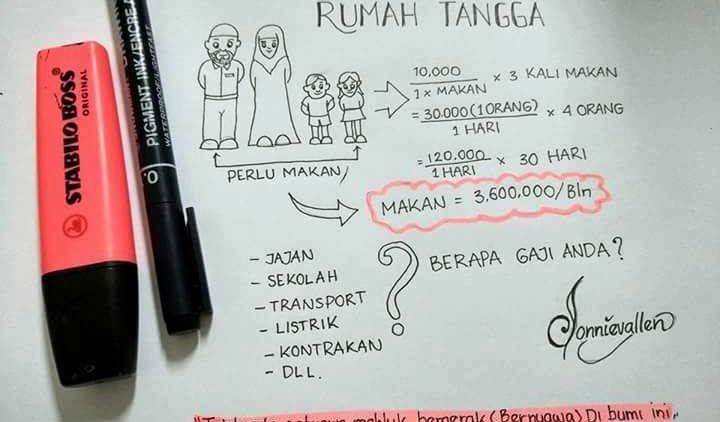 RUMAH TANGGA
10,000 / 1 x MAKAN x 3 KALI MAKAN
= 30.000 (1 ORANG) / 1 HARI x 4 ORANG
= 120.000 / 1 HARI x 30 HARI
PERLU MAKAN/
MAKAN = 3,600,000/Bln
- JAJAN
- SEKOLAH
- TRANSPORT
- LISTRIK
- KONTRAKAN
- DLL.
?
BERAPA GAJI ANDA?
Donnievallen
mahluk bergerak (Bernyawa) Di bumi ini
STABILO BOSS
ORIGINAL
PIGMENT INK/ENCRE